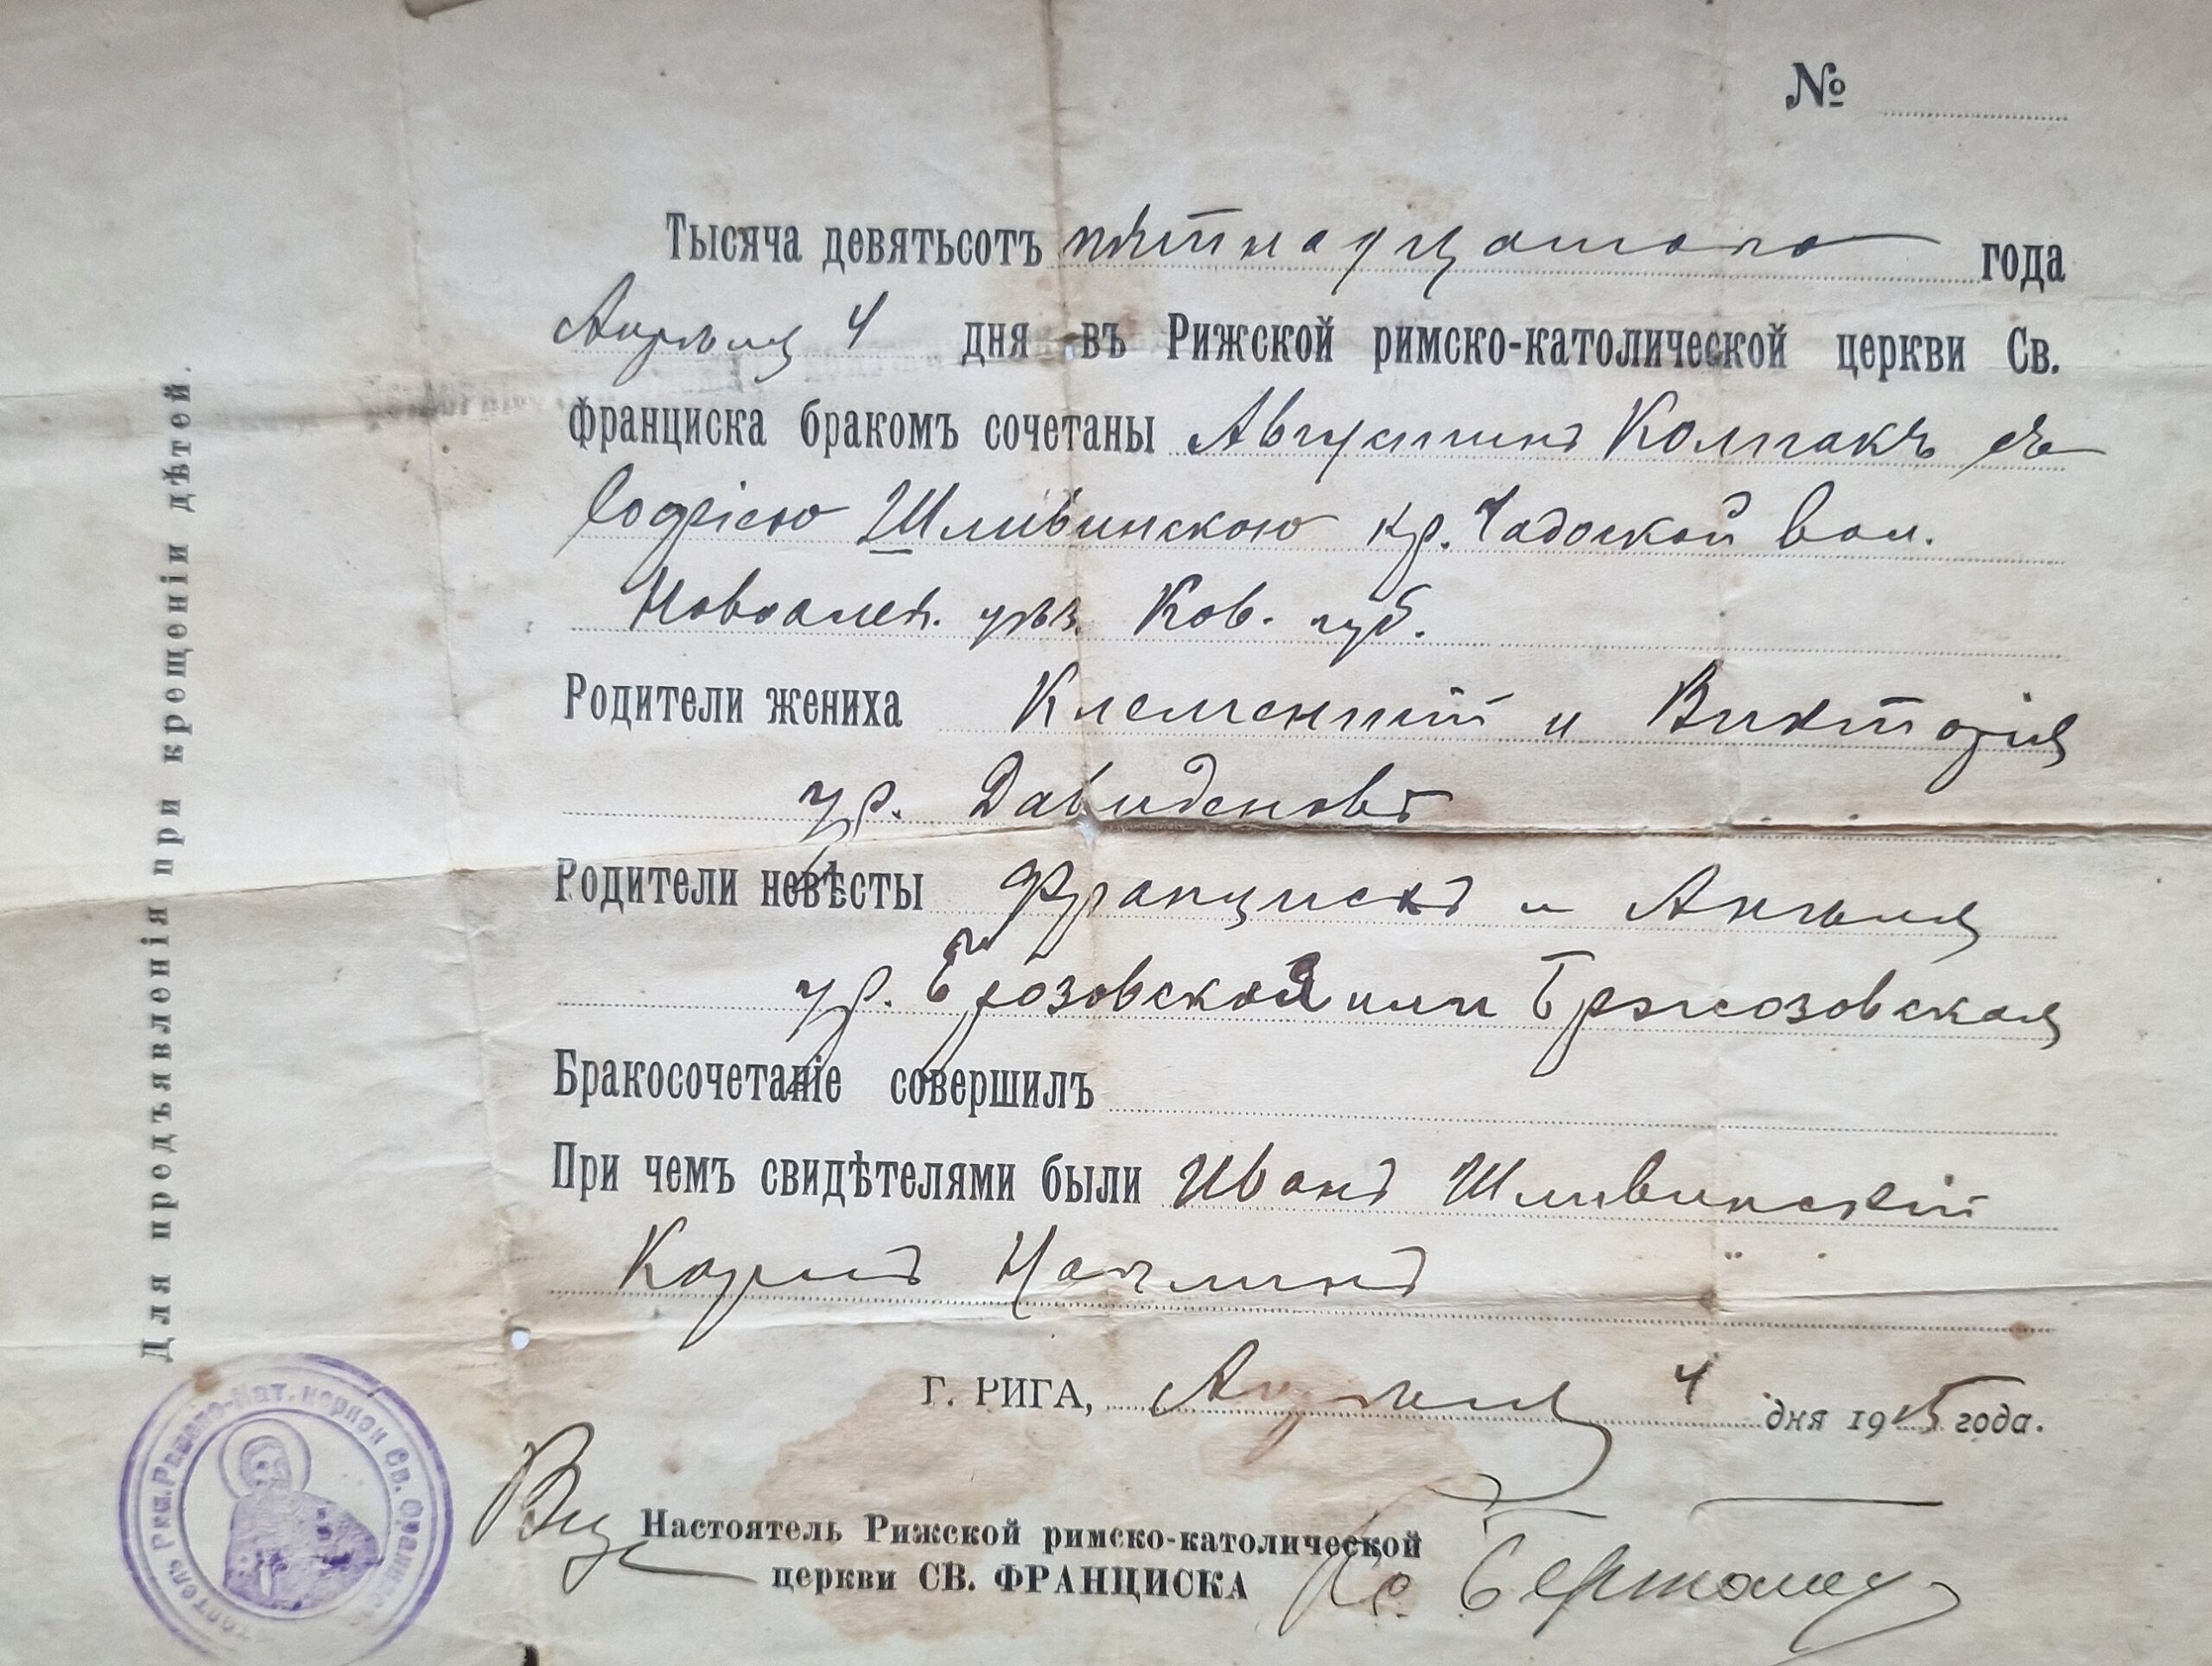 №
Тысяча девятьсотъ пятнадцатаго года
Апрѣля 4 дня въ Рижской римско-католической церкви Св.
Франциска бракомъ сочетаны Августинъ Колпакъ съ
Софіею Шливинскою кр. Чадоской вол.
Новоалек. уѣз. Ков. губ.
Родители жениха Клементій и Викторія
ур. Давиденовъ
Родители невѣсты Францискъ и Ангеля
ур. Брозовская или Бржозовская
Бракосочетаніе совершилъ
При чемъ свидѣтелями были Иванъ Шливинскій
Карлъ
Г. РИГА, Апрѣля 4 дня 1915 года.
Виц Настоятель Рижской римско-католической
церкви СВ. ФРАНЦИСКА Кс.
Для предъявленія при крещеніи дѣтей.
Римско-Кат. церкви Св. Франциска